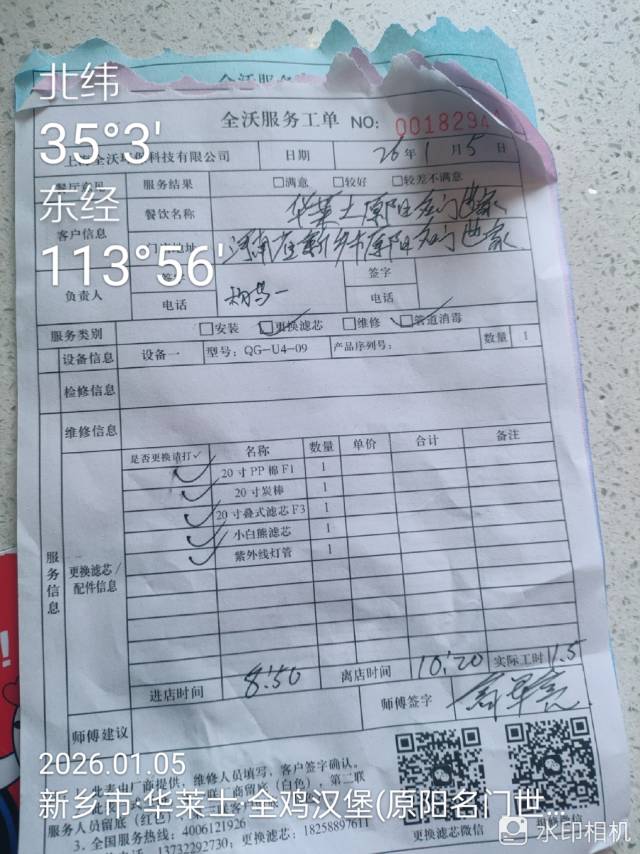 北纬
35°3'
东经
113°56'
全沃服务工单 NO: 0018294
科技有限公司 日期 26年1月5日
服务结果 □满意 □较好 □较差不满意
客户信息 餐饮名称 华莱士原阳名门世家
门店地址 河南省新乡市原阳名门世家
负责人 签字
电话 电话
服务类别 □安装 ☑更换滤芯 □维修 ☑管道消毒
设备信息 设备一 型号: QG-U4-09 产品序列号: 数量 1
检修信息
维修信息
服务信息
更换滤芯/配件信息
是否更换请打✓ 名称 数量 单价 合计 备注
✓ 20寸PP棉F1 1
✓ 20寸炭棒 1
✓ 20寸叠式滤芯F3 1
✓ 小白熊滤芯 1
✓ 紫外线灯管 1
进店时间 8:50 离店时间 10:20 实际工时 1.5
师傅建议 师傅签字
2026.01.05
新乡市·华莱士·全鸡汉堡(原阳名门世...
1. 此表由厂商提供,维修人员填写,客户签字确认。
服务人员留底(红色)
3. 全国服务热线: 4006121926
13732292730; 更换滤芯: 18258897611
更换滤芯微信
水印相机